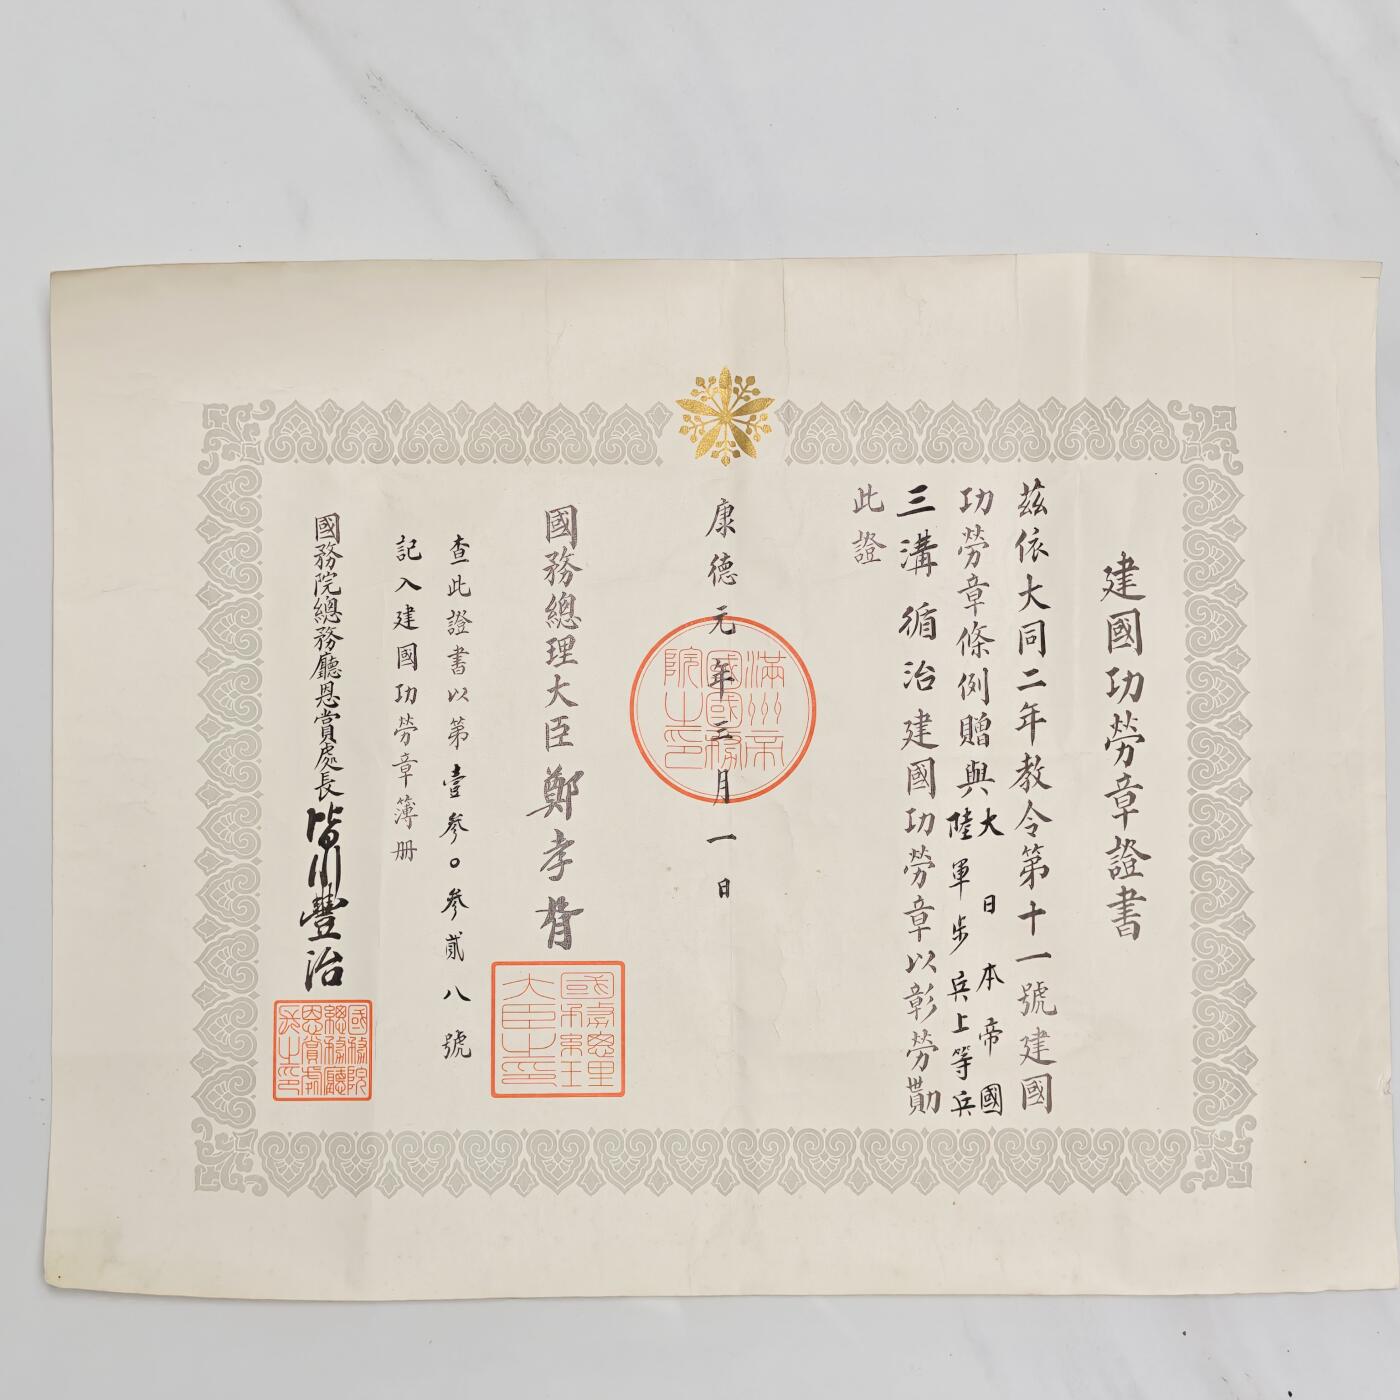 建國功勞章證書
茲依大同二年教令第十一號建國
功勞章條例贈與大日本帝國
陸軍步兵上等兵
三溝循治建國功勞章以彰勞勩
此證
康德元年三月一日
滿州帝
國國務
院之印
國務總理大臣鄭孝胥
國務總理
大臣之印
查此證書以第壹參〇參貳八號
記入建國功勞章簿册
國務院總務廳恩賞處長皆川豐治
國務院
總務廳
恩賞處
長之印